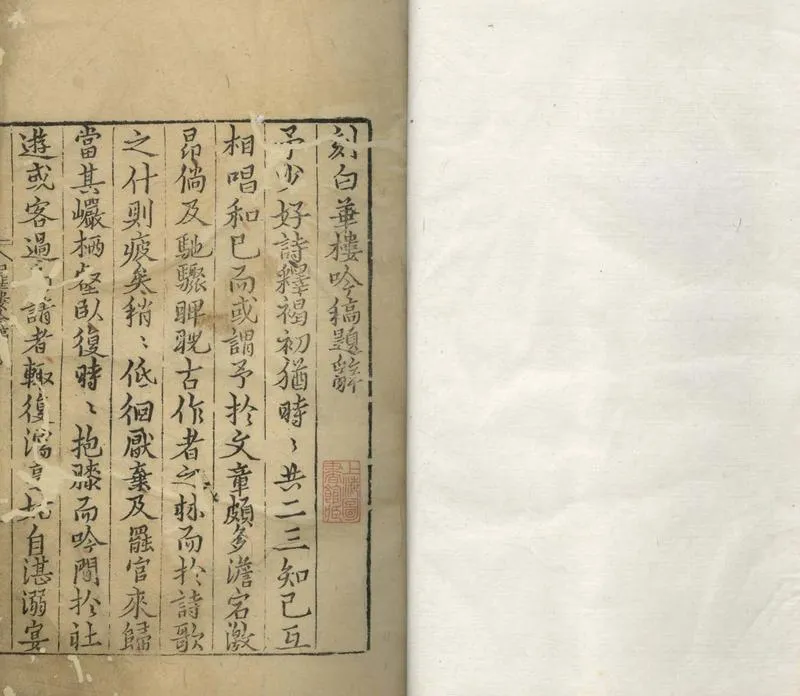 刻白華樓吟稿題辭
予少好詩釋褐初猶時〻共二三知己互
相唱和已而或謂予於文章頗多澹宕激
昂倘及馳驟睥睨古作者之林而於詩歌
之什則疲矣稍〻低徊厭棄及罷官來歸
當其巖栖壑臥復時〻抱膝而吟間於社
遊或客過請者輒復濡自湛溺宴
上海圖書館藏